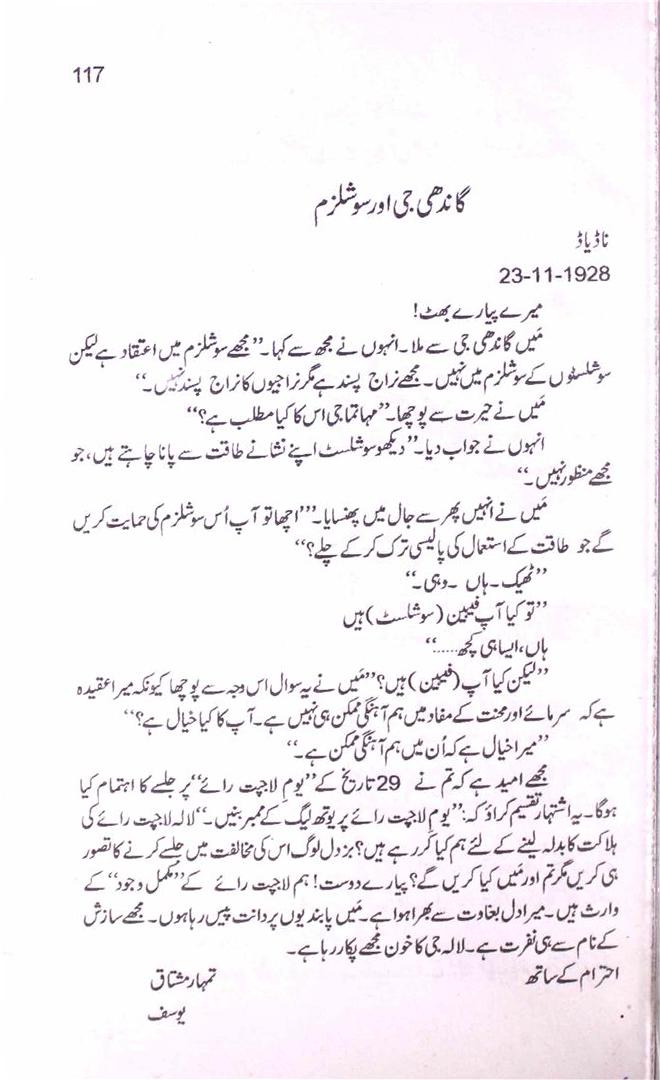 117
گاندھی جی اور سوشلزم
ناڈیاڈ
23-11-1928
میرے پیارے بھٹ!
مَیں گاندھی جی سے ملا۔ انہوں نے مجھ سے کہا۔ ’’مجھے سوشلزم میں اعتقاد ہے لیکن
سوشلسٹوں کے سوشلزم میں نہیں۔ مجھے نراج پسند ہے مگر نراجیوں کا نراج پسند نہیں۔‘‘
مَیں نے حیرت سے پوچھا۔ ’’مہاتما جی اس کا کیا مطلب ہے؟‘‘
انہوں نے جواب دیا۔ ’’دیکھو سوشلسٹ اپنے نشانے طاقت سے پانا چاہتے ہیں، جو
مجھے منظور نہیں۔‘‘
مَیں نے انہیں پھر سے جال میں پھنسایا۔ ’’اچھا تو آپ اُس سوشلزم کی حمایت کریں
گے جو طاقت کے استعمال کی پالیسی ترک کر کے چلے؟‘‘
’’ٹھیک۔ ہاں ۔ وہی۔‘‘
’’تو کیا آپ فیبین (سوشلسٹ) ہیں
ہاں، ایسا ہی کچھ.....‘‘
’’لیکن کیا آپ (فیبین) ہیں؟‘‘ مَیں نے یہ سوال اس وجہ سے پوچھا کیونکہ میرا عقیدہ
ہے کہ سرمائے اور محنت کے مفاد میں ہم آہنگی ممکن ہی نہیں ہے۔ آپ کا کیا خیال ہے؟‘‘
’’میرا خیال ہے کہ اُن میں ہم آہنگی ممکن ہے۔‘‘
مجھے امید ہے کہ تم نے 29 تاریخ کے ’’یومِ لاجپت رائے‘‘ پر جلسے کا اہتمام کیا
ہوگا۔ یہ اشتہار تقسیم کراؤ کہ: ’’یومِ لاجپت رائے پر یوتھ لیگ کے ممبر بنیں۔‘‘ لالہ لاجپت رائے کی
ہلاکت کا بدلہ لینے کے لئے ہم کیا کر رہے ہیں؟ بزدل لوگ اس کی مخالفت میں جلسے کرنے کا تصور
ہی کریں مگر تم اور مَیں کیا کریں گے؟ پیارے دوست! ہم لاجپت رائے کے ’’مکمل وجود‘‘ کے
وارث ہیں۔ میرا دل بغاوت سے بھرا ہوا ہے۔ مَیں پابندیوں پر دانت پیس رہا ہوں۔ مجھے سازش
کے نام سے ہی نفرت ہے۔ لالہ جی کا خون مجھے پکار رہا ہے۔
احترام کے ساتھ تمہار مشتاق
یوسف